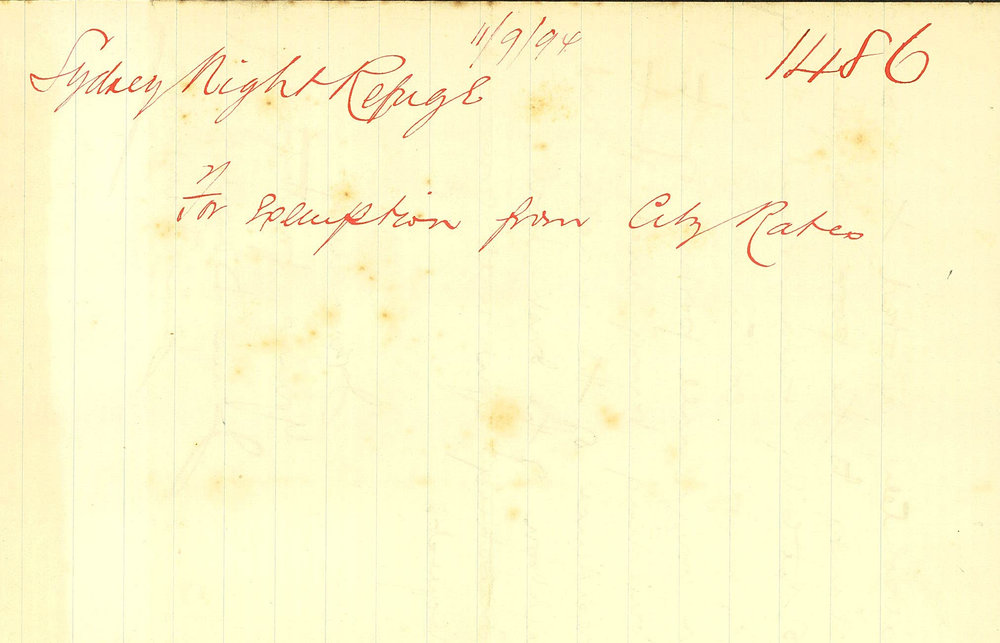 11/9/94
1486
Sydney Night Refuge
For Exemption from City Rates